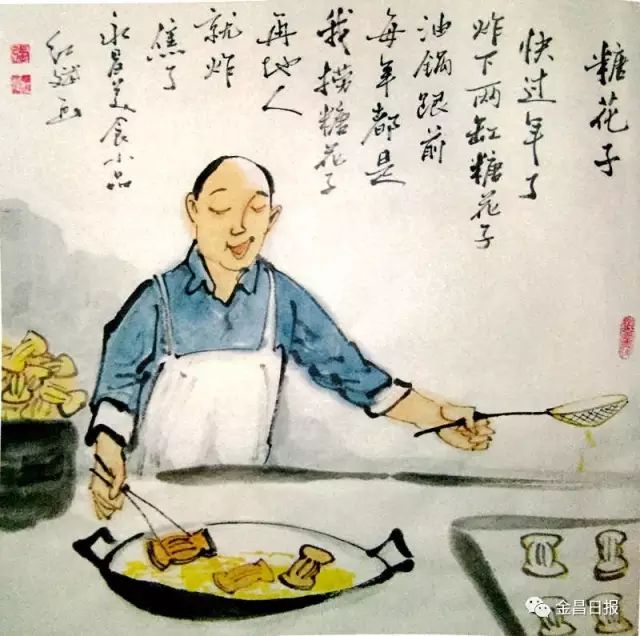 糖花子
快过年了
炸下两缸糖花子
油锅跟前
每年都是
我捞糖花子
再地人
就炸
焦了
永昌美食小品
金昌日报